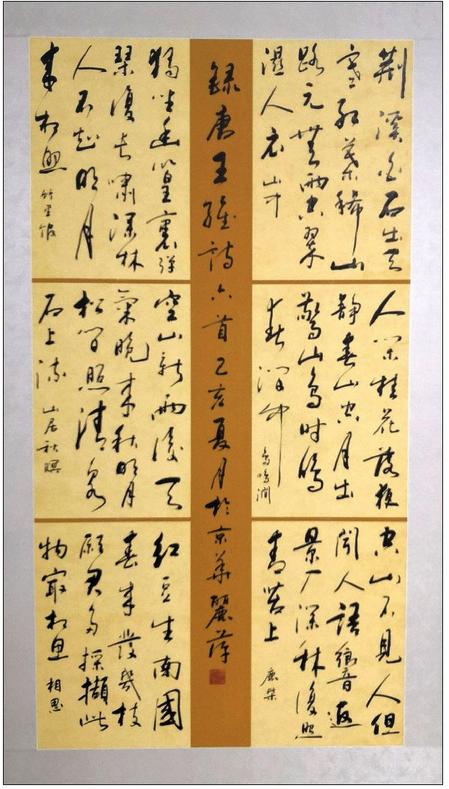 荆溪白石出天
寒紅葉稀山
路元無雨空翠
濕人衣 山中
人閑桂花落夜
靜春山空月出
驚山鳥時鳴
春澗中 鳥鳴澗
空山不見人但
聞人語響返
景入深林復照
青苔上 鹿柴
録唐王維詩六首己亥夏月於京華麗萍
獨坐幽篁裏彈
琴復長嘯深林
人不知明月
來相照 竹里館
空山新雨後天
氣晚來秋明月
松間照清泉
石上流 山居秋暝
紅豆生南國
春來發幾枝
願君多採擷此
物最相思 相思